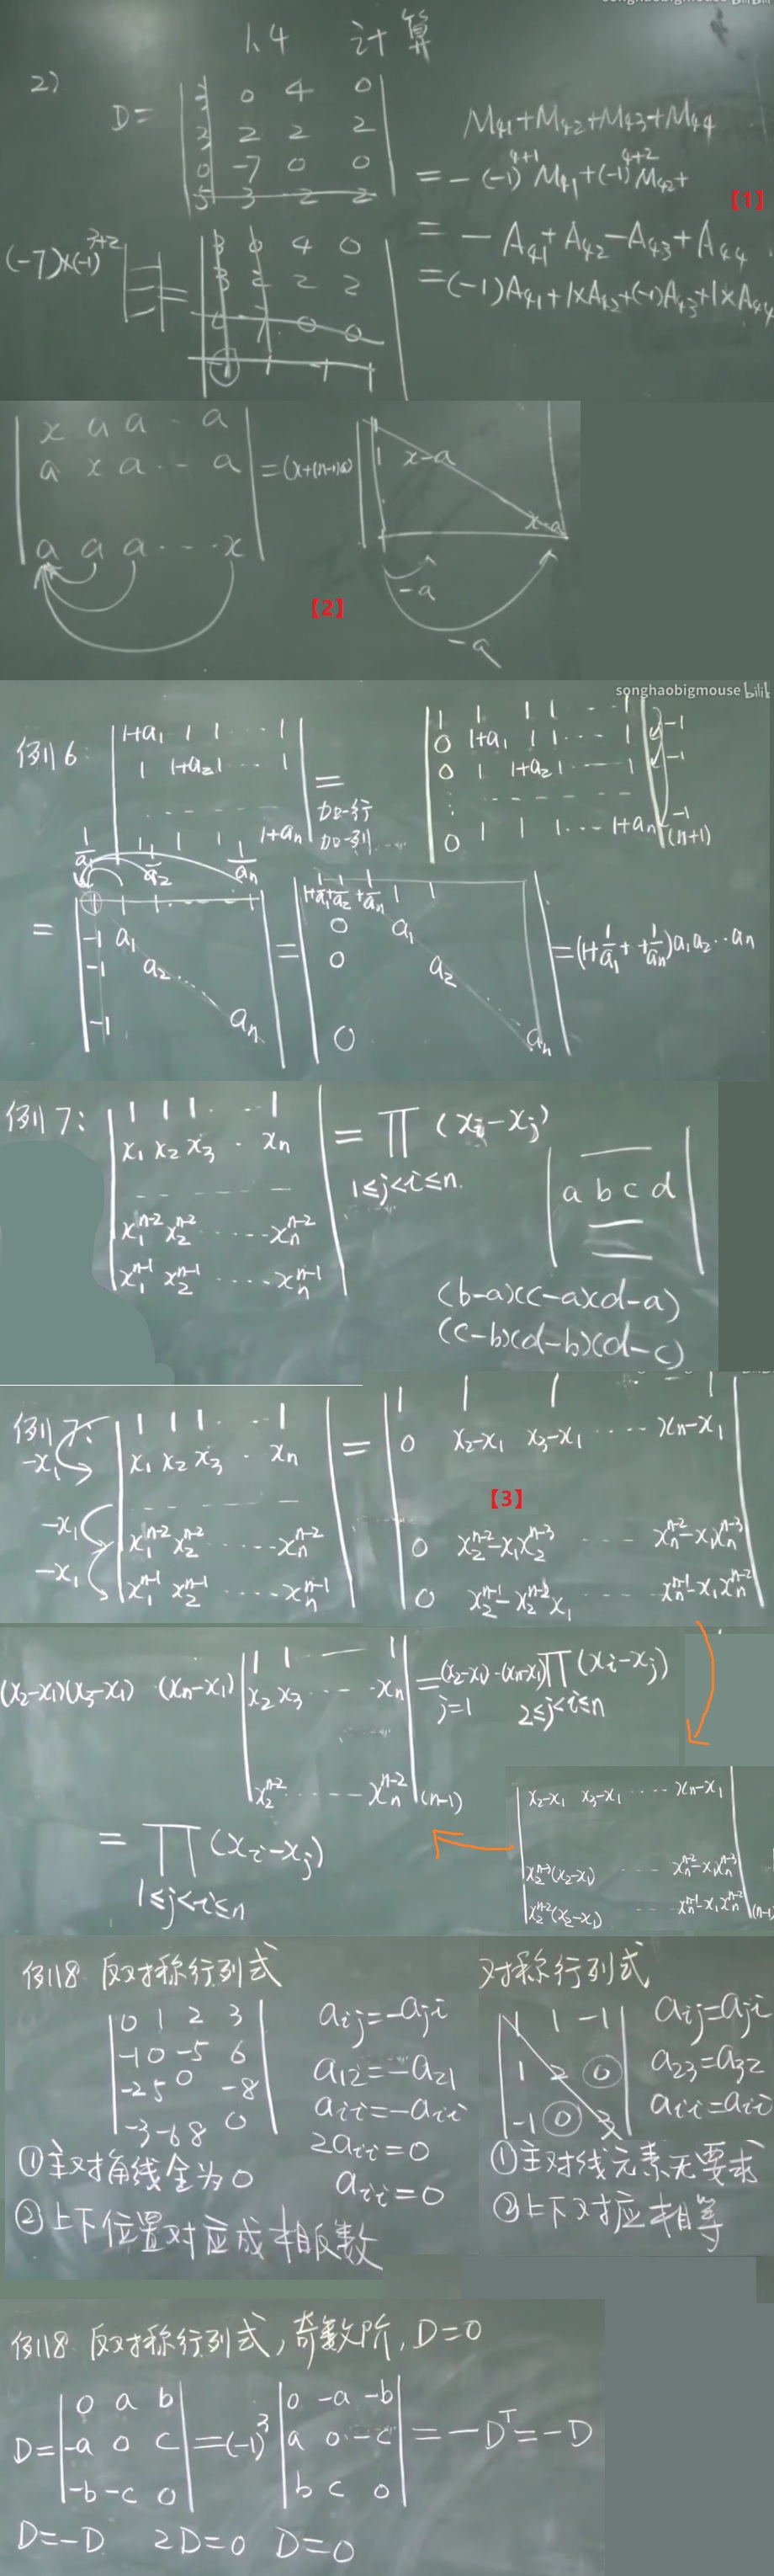 songhaobigmouse bilibili
1.4 计算
2)
D= | 3 0 4 0 |
| 2 2 2 2 |
| 0 -7 0 0 |
| 5 3 -2 2 |
M41+M42+M43+M44
= -(-1)^{4+1} M41+(-1)^{4+2} M42+
【1】
= -A41+A42-A43+A44
=(-1)A41+1×A42+(-1)A43+1×A44
(-7)×(-1)^{3+2} | | =
| 3 0 4 0 |
| 2 2 2 2 |
| 0 -7 0 0 |
| -1 1 -1 1 |
| x a a … a |
| a x a … a |
| a a a … x |
=(x+(n-1)a)
| 1 |
| 1 x-a |
| 1 x-a |
-a
-a
【2】
songhaobigmouse bilibili
例6:
| 1+a1 1 1 … 1 |
| 1 1+a2 1 … 1 |
| 1 1 1 1 1+an |
=
加一行
加一列
| 1 1 1 1 … 1 |
| 0 1+a1 1 1 … 1 |
| 0 1 1+a2 1 … 1 |
| 0 1 1 1 … 1+an | (n+1)
-1
-1
-1
1/a1 1/a2 1/an
=
| 1 1 1 … 1 |
| -1 a1 |
| -1 a2 … |
| -1 an |
=
| 1+1/a1+1/a2+1/an 1 1 |
| 0 a1 |
| 0 a2 |
| 0 an |
=(1+1/a1+ +1/an)a1a2…an
例7:
| 1 1 1 … 1 |
| x1 x2 x3 … xn |
| x1^{n-2} x2^{n-2} …… xn^{n-2} |
| x1^{n-1} x2^{n-1} …… xn^{n-1} |
= ∏ (xi-xj)
1≤j<i≤n.
| a b c d |
(b-a)(c-a)(d-a)
(c-b)(d-b)(d-c)
例7:
-x1
-x1
-x1
| 1 1 1 … 1 |
| x1 x2 x3 … xn |
| x1^{n-2} x2^{n-2} …… xn^{n-2} |
| x1^{n-1} x2^{n-1} …… xn^{n-1} |
=
| 1 1 1 … 1 |
| 0 x2-x1 x3-x1 …… xn-x1 |
【3】
| 0 x2^{n-2}-x1x2^{n-3} …… xn^{n-2}-x1xn^{n-3} |
| 0 x2^{n-1}-x2^{n-2}x1 …… xn^{n-1}-x1xn^{n-2} |
(x2-x1)(x3-x1) …(xn-x1)
| 1 1 — 1 |
| x2 x3 …… xn |
| x2^{n-2} …… xn^{n-2} | (n-1)
=(x2-x1)…(xn-x1)∏(xi-xj)
j=1 2≤j<i≤n
= ∏ (xi-xj)
1≤j<i≤n
| x2-x1 x3-x1 …… xn-x1 |
| x2^{n-3}(x2-x1) …… xn^{n-2}-x1xn^{n-3} |
| x2^{n-2}(x2-x1) …… xn^{n-1}-x1xn^{n-2} | (n-1)
例8 反对称行列式
| 0 1 2 3 |
| -1 0 -5 6 |
| -2 5 0 -8 |
| -3 -6 8 0 |
aij=-aji
a12=-a21
aii=-aii
2aii=0
aii=0
①主对角线全为0
②上下位置对应成相反数
对称行列式
| 1 1 -1 |
| 1 2 0 |
| -1 0 3 |
aij=aji
a23=a32
aii=aii
①主对线元素无要求
②上下对应相等
例8 反对称行列式,奇数阶,D=0
D= | 0 a b |
| -a 0 c |
| -b -c 0 |
=(-1)^3
| 0 -a -b |
| a 0 -c |
| b c 0 |
= -D^T=-D
D=-D 2D=0 D=0